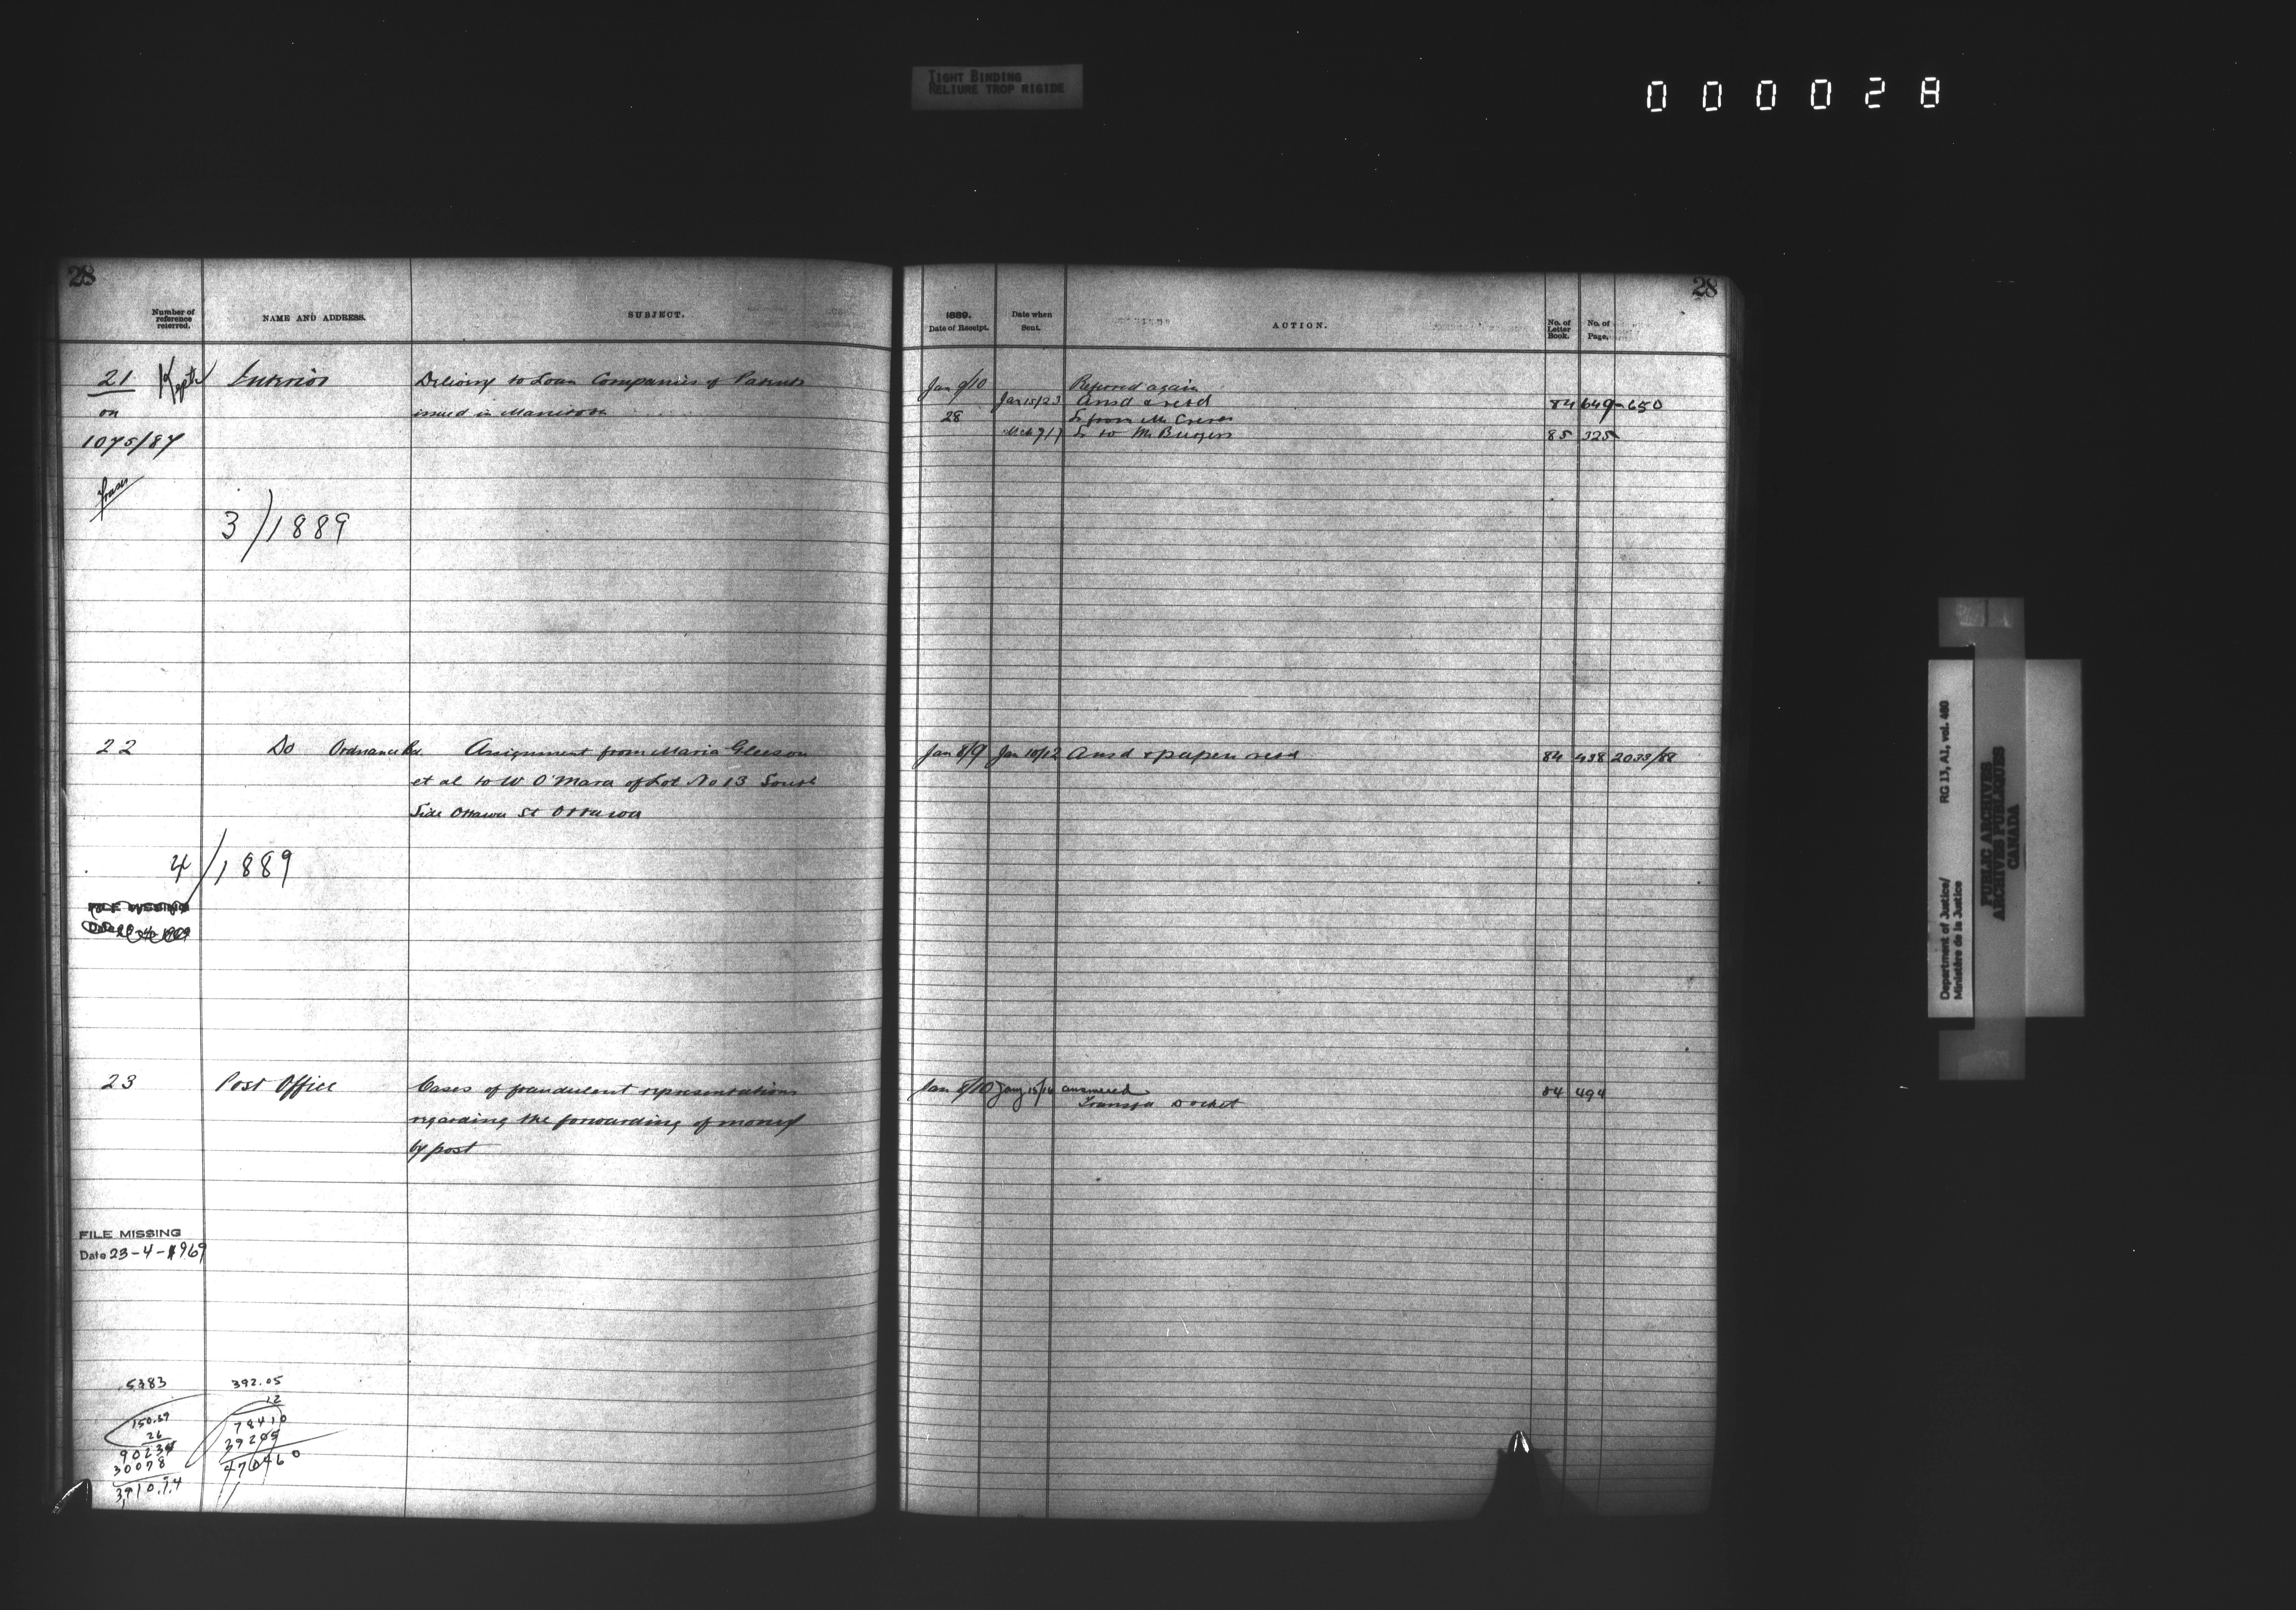 TIGHT BINDING
RELIURE TROP RIGIDE
000028
28
Number of reference referred.
NAME AND ADDRESS.
SUBJECT.
21 Kept Interior Delivery to Loan Companies of Patents
on issued in Manitoba
1075/87
Fraser
3/1889
22 Do Ordnance Assignment from Maria Gleeson
et al to W O'Mara of Lot No 13 South
Side Ottawa St Ottawa
4/1889
FILE MISSING
23 Post Office Cases of fraudulent representations
regarding the forwarding of money
by post
FILE MISSING
Date 23-4-1969
5383 392.05
12
150.39 78410
26 39205
90234 470460
30078
3910.74
28
1889.
Date of Receipt.
Date when Sent.
ACTION.
No. of Letter Book.
No. of Page.
Jan 9/10 Referred again
Jan 15/23 Ansd & retd 84 649-650
28 Lr from Mr
Mch 7/7 Lr to Mr Burgess 85 325
Jan 8/9 Jan 10/12 Ansd & papers retd 84 438 2033/88
Jan 8/10 Jany 15/16 answered 84 494
Transfd Docket
Department of Justice/
Ministère de la Justice
RG 13, A1, vol. 460
PUBLIC ARCHIVES
ARCHIVES PUBLIQUES
CANADA